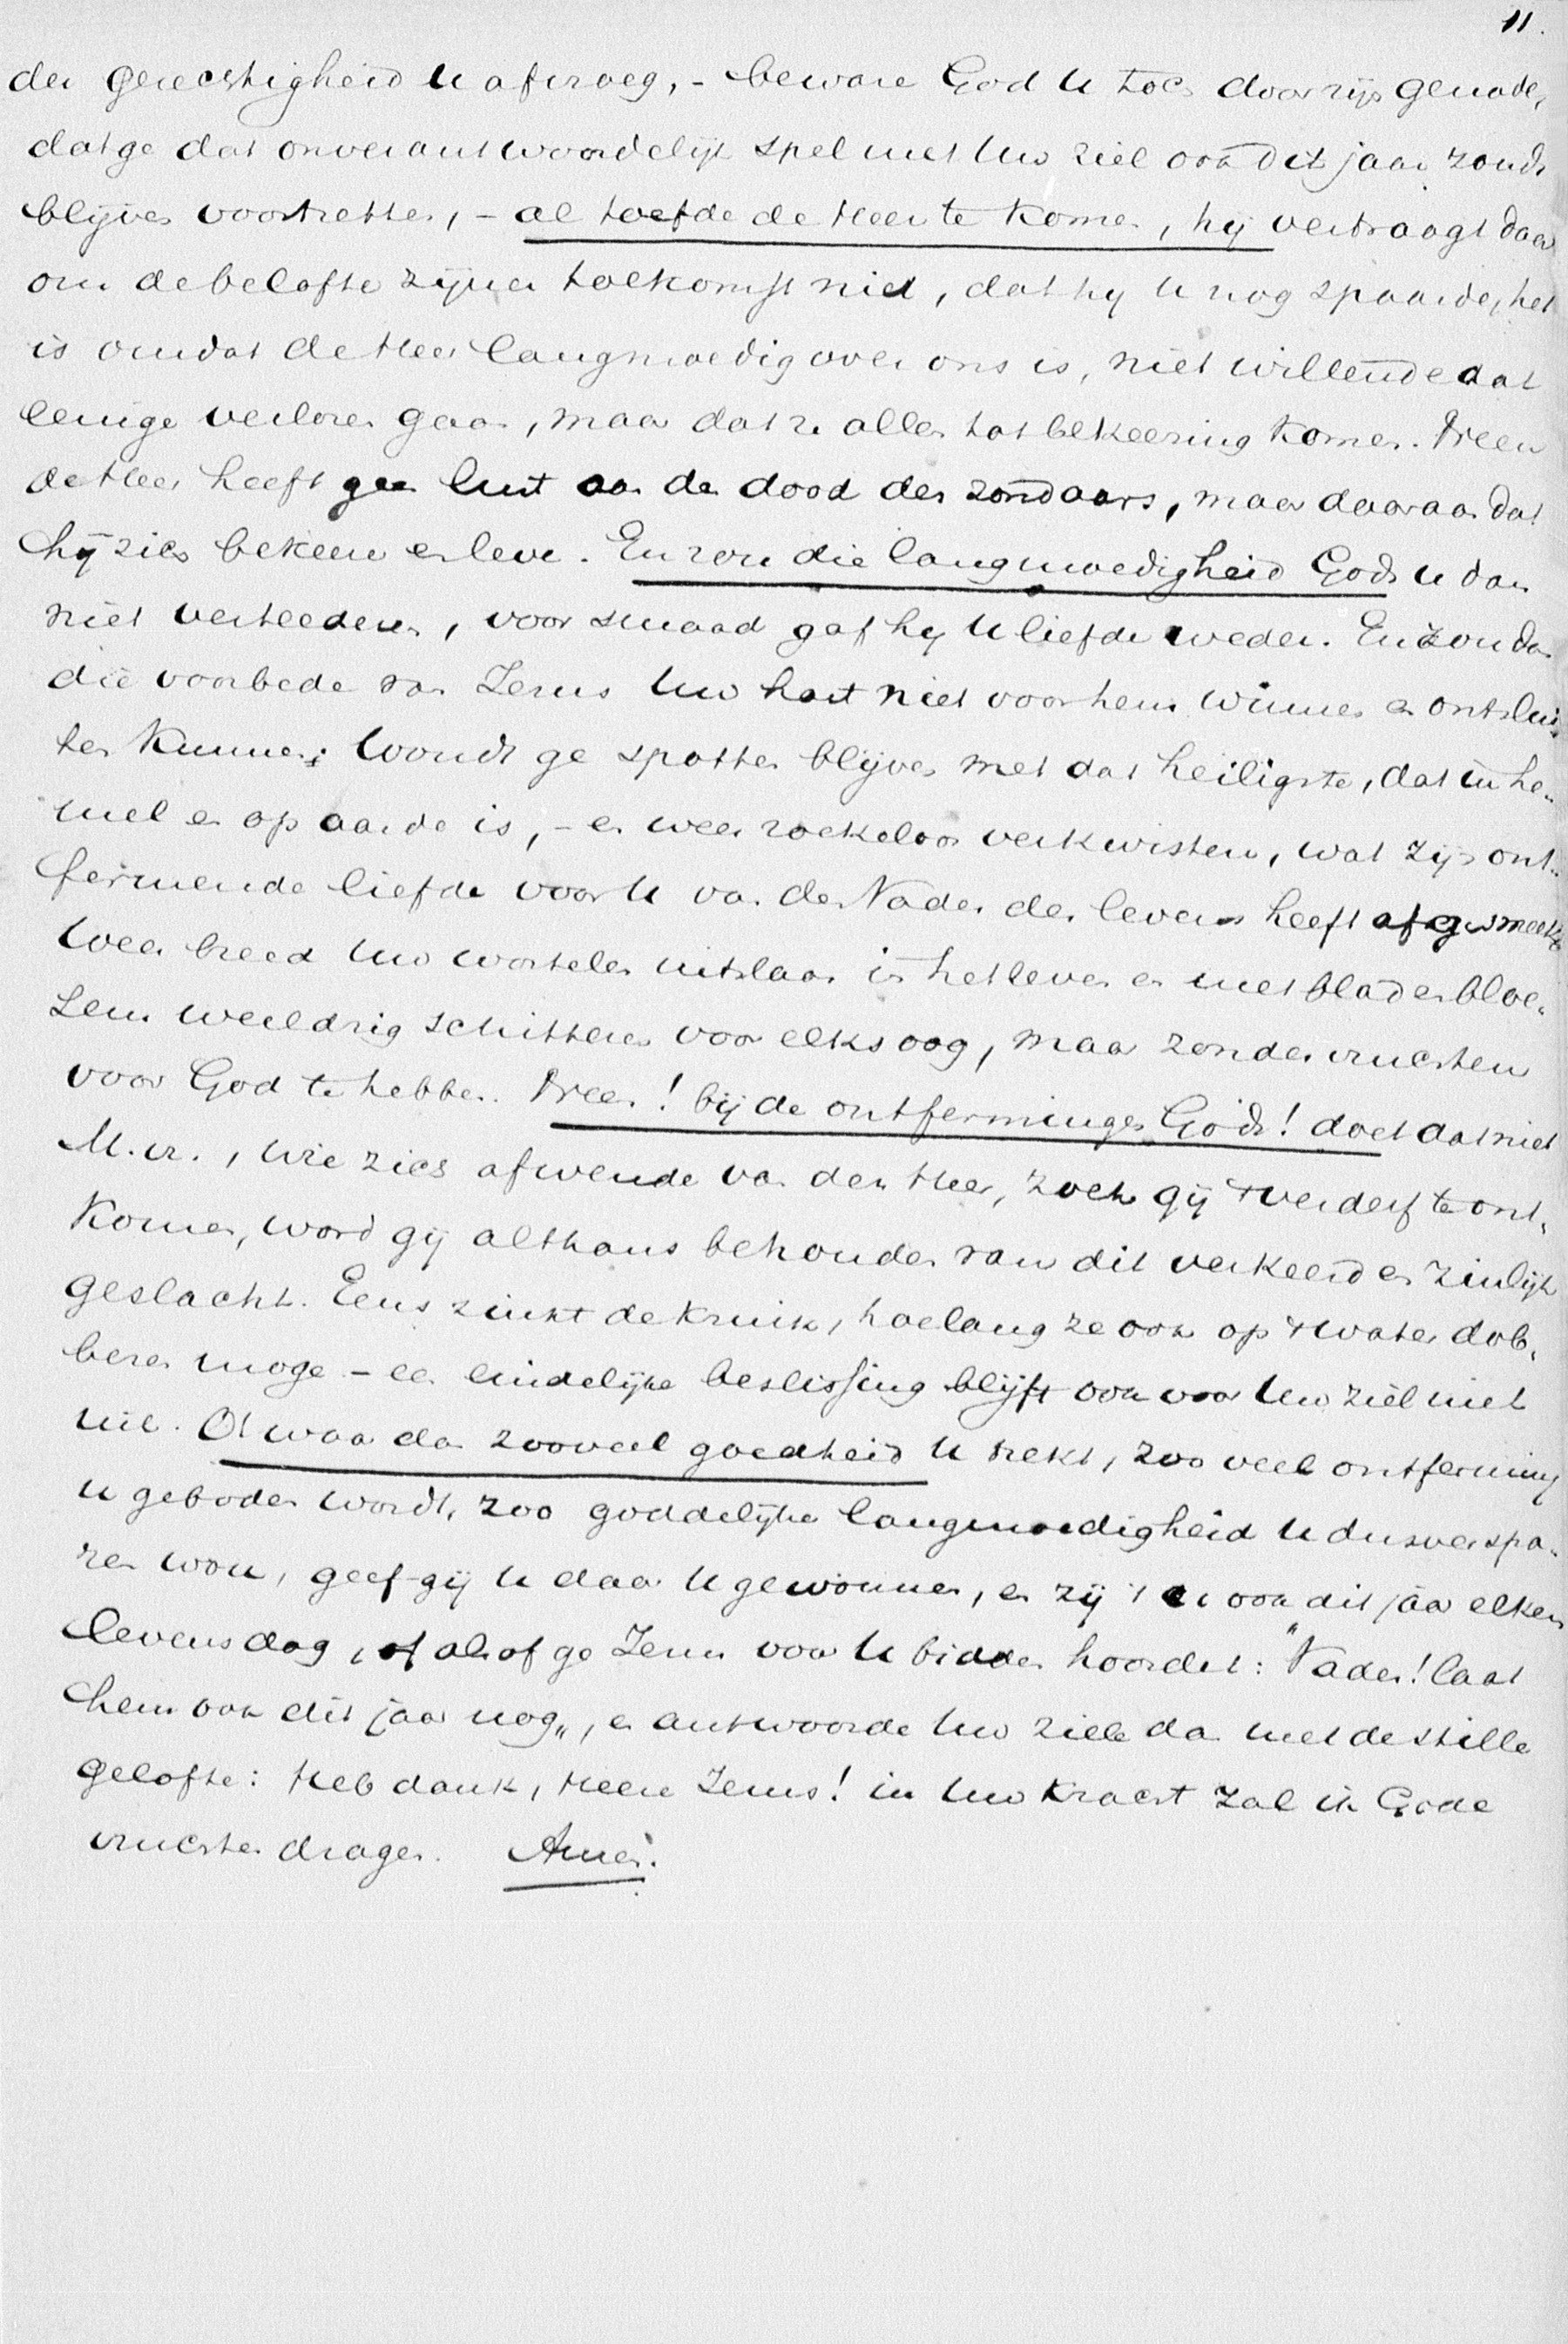 11.
der gerechtigheid U afvroeg, - beware God U toch door zijn genade,
dat ge dat onverantwoordelijk spel met Uw ziel ook dit jaar zoudt
blijven voortzetten, - al toefde de Heer te komen, hij vertraagt daar
om de belofte zijner toekomst niet, dat hij U nog spaarde, het
is omdat de Heer langmoedig over ons is, niet willende dat
eenige verloren gaan, maar dat ze allen tot bekeering komen. Neen
de Heer heeft geen lust aan den dood des zondaars, maar daaraan dat
hij zich bekeere en leve. En zou die langmoedigheid Gods U dan
niet verteederen, voor smaad gaf hij U liefde weder. En zou dan
die voorbede van Jezus Uw hart niet voor hem winnen en ontslui
ten kunnen; Woudt ge spotten blijven met dat heiligste, dat in he-
mel en op aarde is, - en weer roekeloos verkwisten, wat zijn ont-
fermende liefde voor U van den Vader des levens heeft afgesmeekt
Weer breed Uw wortelen uitslaan in het leven en met blad en bloe-
sem weeldrig schitteren voor elks oog, maar zonder vruchten
voor God te hebben. Neen! bij de ontfermingen Gods! doet dat niet
M. vr., wie zich afwende van den Heer, zoek gij 't verderf te ont-
komen, word gij althans behouden van dit verkeerd en zinlijk
geslacht. Eens zinkt de kruik, hoelang ze ook op 't water dob-
beren moge - een eindelijke beslissing blijft ook voor Uw ziel niet
uit. O! waar dan zooveel goedheid U trekt, zoo veel ontferming
U geboden wordt, zoo goddelijke langmoedigheid U dusver spa-
ren wou, geef gij U daar U gewonnen, en zij 't U ook dit jaar elken
levensdag, alsof ge Jezus voor U bidden hoordet: "Vader! laat
hem ook dit jaar nog„, en antwoorde Uw ziele dan met de stille
gelofte: Heb dank, Heere Jezus! in Uw kracht zal ik Gode
vruchten dragen. Amen.